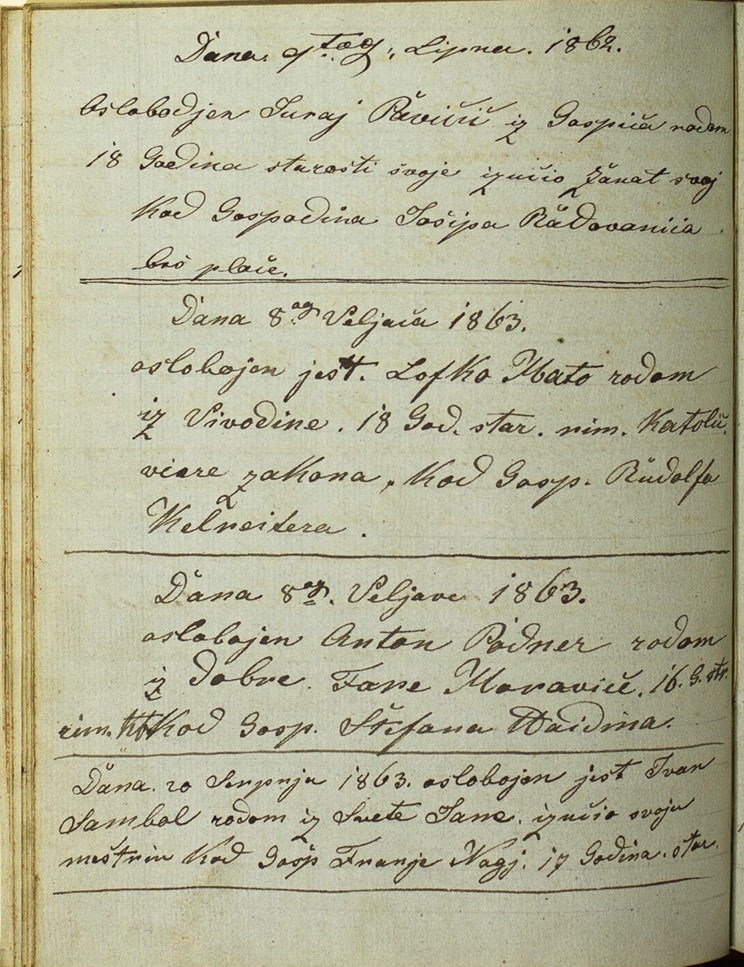 Dana 9tog Lipna. 1862.
Oslobodjen Juraj Pavičić iz Gospića rodom
18 Godina starosti svoje izučio žanat svoj
Kod Gospodina Josipa Radovanića
bes plaće.
Dana 8og Veljača 1863.
oslobojen jest. Lofko Mato rodom
iz Vivodine. 18 God. star. rim. Katolič.
viere zakona, Kod Gosp. Rudolfa
Kelneitera.
Dana 8og. Veljave 1863.
oslobojen Anton Podner rodom
iz Dobre. Fare Moraviče. 16. G. str.
rim. Kt Kod Gosp. Štefana Haidina.
Dana. 20 Serpnja 1863. oslobojen jest Ivan
Sambol rodom iz Svete Jane. izučio svoju
meštriu Kod Gosp Franje Nagj. 17 Godina. star.